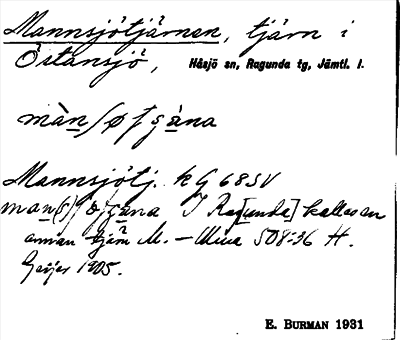 Mannsjötjärnen, tjärn i
Östansjö, Håsjö sn, Ragunda tg, Jämtl. l.
màn ʃøʃçàna
Mannsjötj. kG 68SV
man(s)ʃøʃçàna I Ra[gunda] kallas en
annan tjärn M. –
Geijer 1905.
E. BURMAN 1931